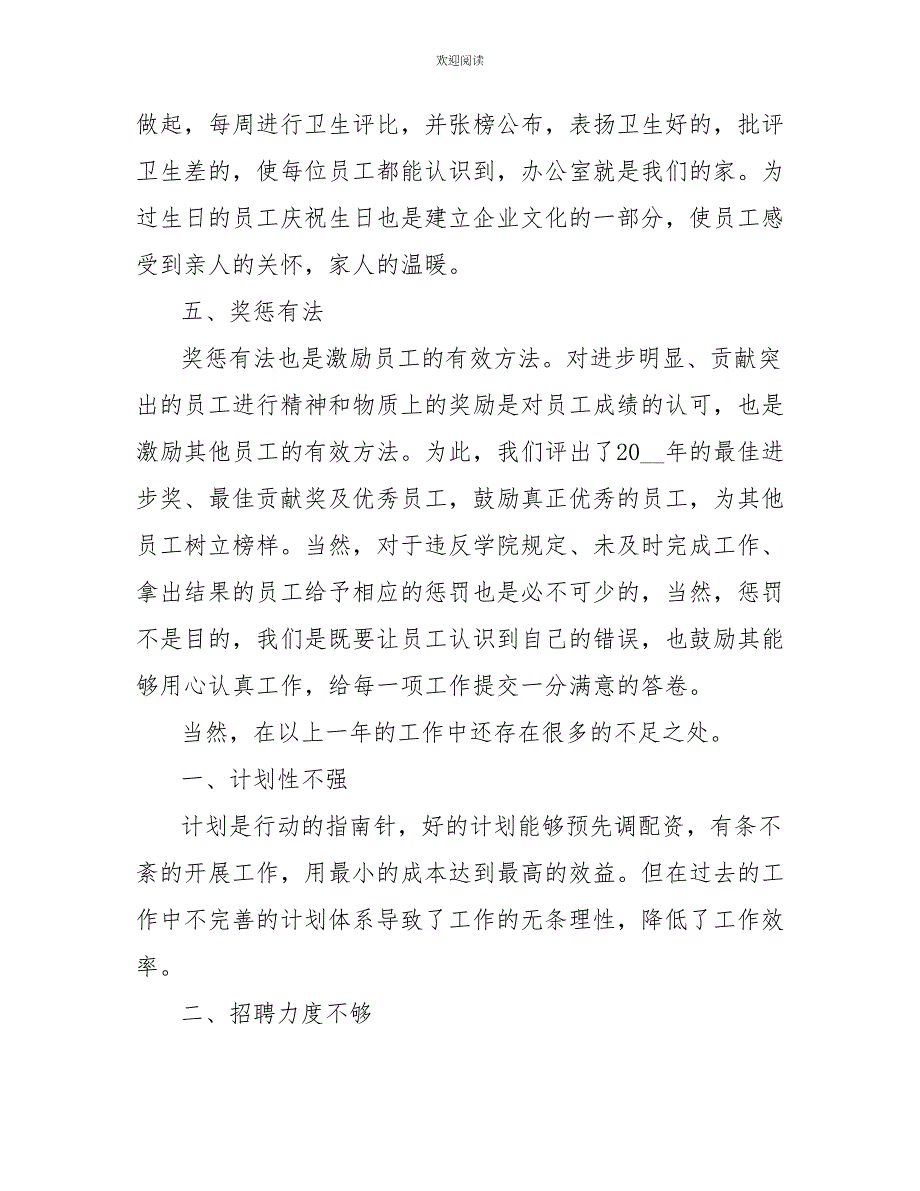 欢迎阅读
做起，每周进行卫生评比，并张榜公布，表扬卫生好的，批评
卫生差的，使每位员工都能认识到，办公室就是我们的家。为
过生日的员工庆祝生日也是建立企业文化的一部分，使员工感
受到亲人的关怀，家人的温暖。
五、奖惩有法
奖惩有法也是激励员工的有效方法。对进步明显、贡献突
出的员工进行精神和物质上的奖励是对员工成绩的认可，也是
激励其他员工的有效方法。为此，我们评出了20__年的最佳进
步奖、最佳贡献奖及优秀员工，鼓励真正优秀的员工，为其他
员工树立榜样。当然，对于违反学院规定、未及时完成工作、
拿出结果的员工给予相应的惩罚也是必不可少的，当然，惩罚
不是目的，我们是既要让员工认识到自己的错误，也鼓励其能
够用心认真工作，给每一项工作提交一分满意的答卷。
当然，在以上一年的工作中还存在很多的不足之处。
一、计划性不强
计划是行动的指南针，好的计划能够预先调配资，有条不
紊的开展工作，用最小的成本达到最高的效益。但在过去的工
作中不完善的计划体系导致了工作的无条理性，降低了工作效
率。
二、招聘力度不够